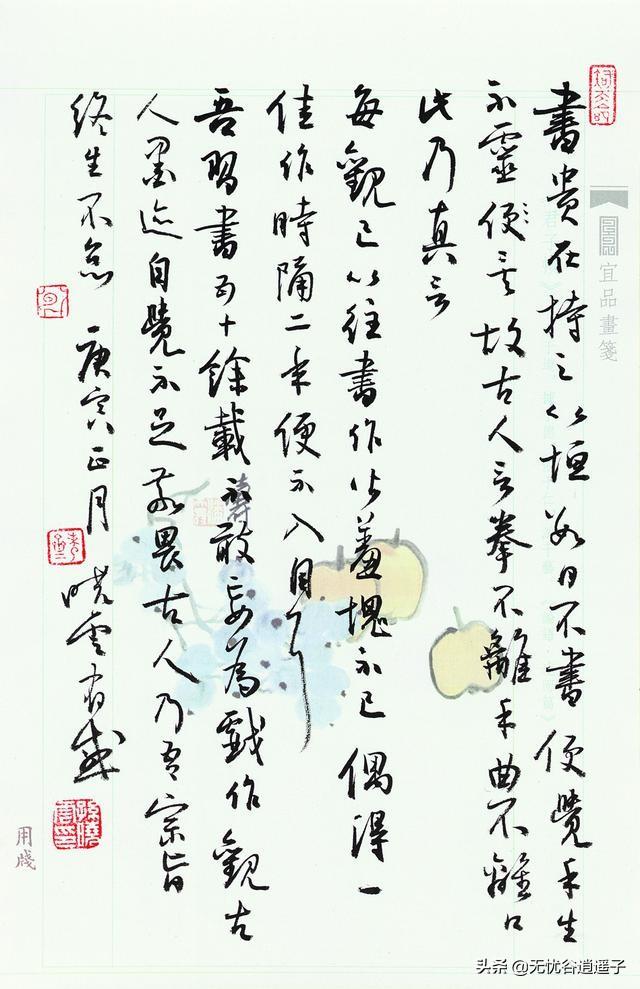 書貴在持之以恒數日不書便覺手生
不靈便矣故古人言拳不離手曲不離口
此乃真言
每觀己以往書作皆羞愧不已偶得一
佳作時隔二年便不入目了
吾習書五十餘載不敢妄為戲作觀古
人墨迹自覺不足敬畏古人乃吾宗旨
終生不怠 庚寅正月
曉雲有感
宜品畫箋
用牋
头条 @无忧谷逍遥子